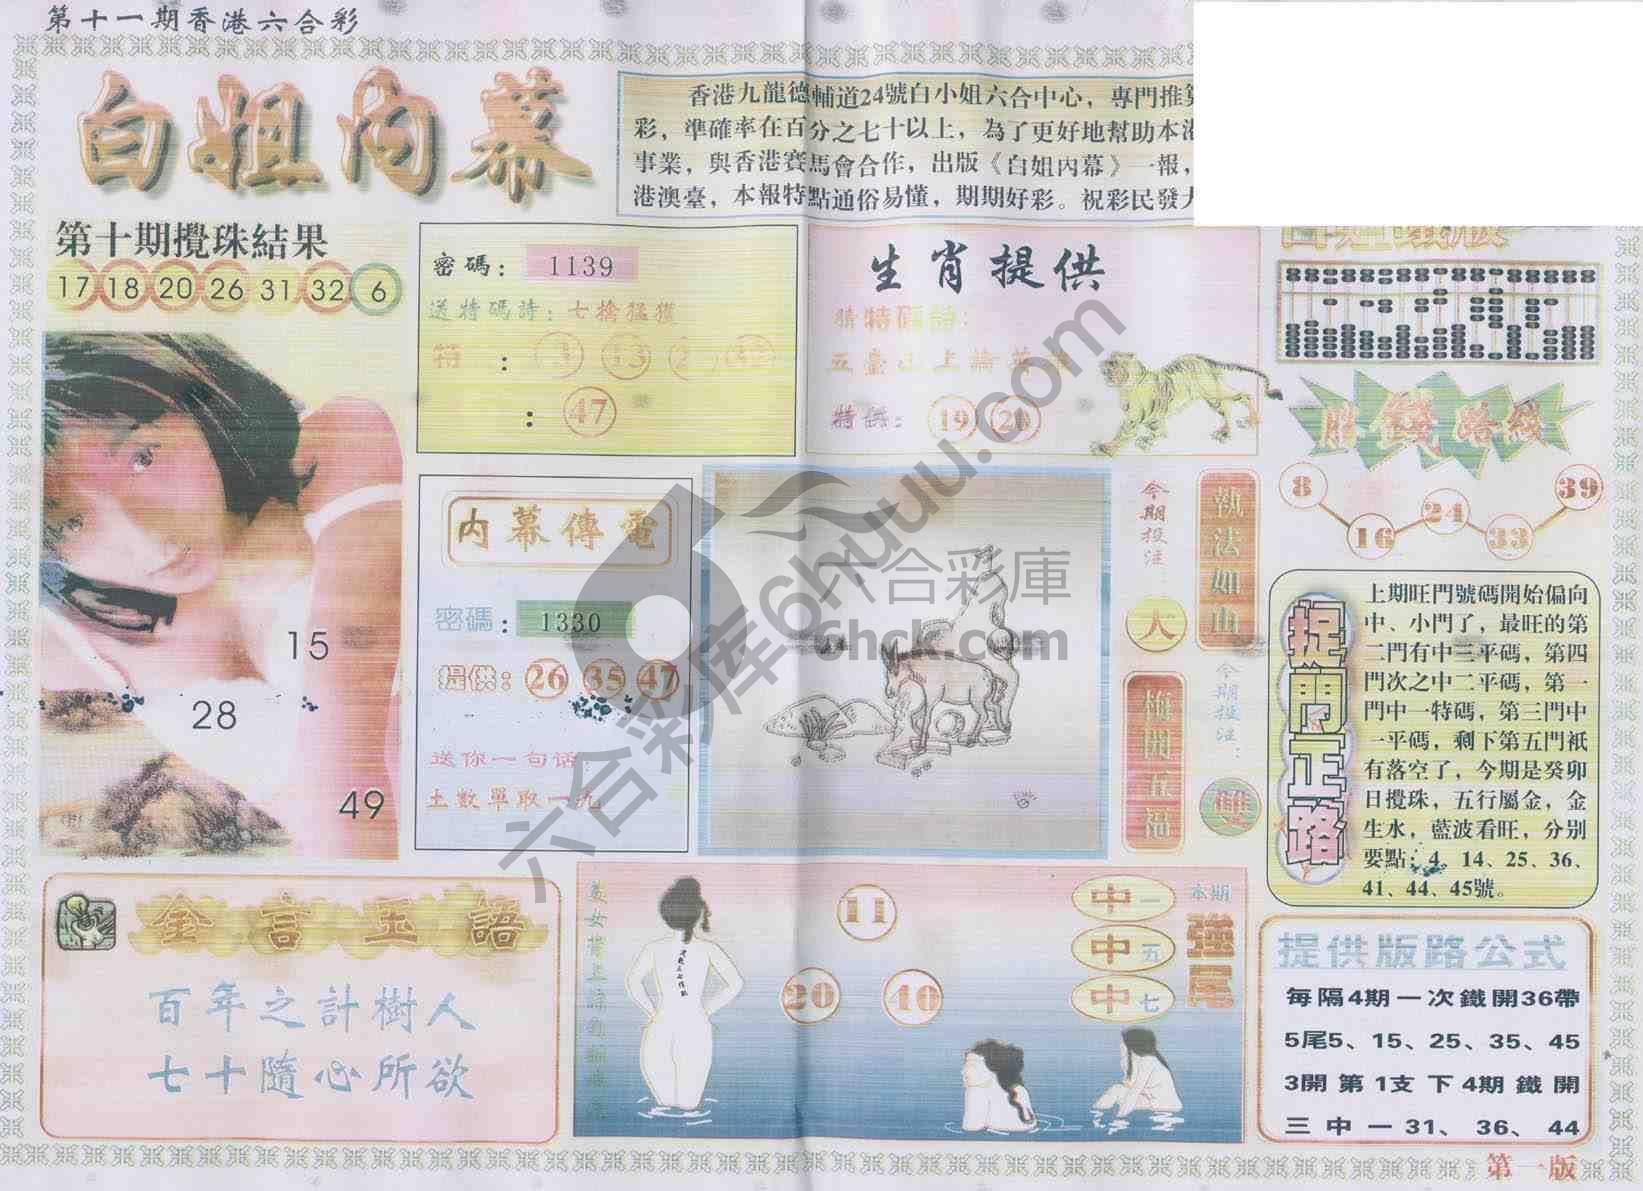 第十一期香港六合彩
白姐内幕
香港九龍德輔道24號白小姐六合中心，專門推算
彩，準確率在百分之七十以上，為了更好地幫助本港
事業，與香港賽馬會合作，出版《白姐內幕》一報，
港澳臺，本報特點通俗易懂，期期好彩。祝彩民發大
第十期攪珠結果
17 18 20 26 31 32 6
密碼： 1139
送特碼詩：七擒猛獲
特：
：47
生肖提供
猜特碼詩：
五臺山上
特供：19 20
勝錢路线
8 16 24 33 39
15
28
49
内幕傳電
密碼： 1330
提供：26 35 47
送你一句话：
土數單取一九
今期投注：
大
執法如山
梅開五福
今期投注：
雙
捉門正路
上期旺門號碼開始偏向
中、小門了，最旺的第
二門有中三平碼，第四
門次之中二平碼，第一
門中一特碼，第三門中
一平碼，剩下第五門衹
有落空了，今期是癸卯
日攪珠，五行屬金，金
生水，藍波看旺，分别
要點：4、14、25、36、
41、44、45號。
金言玉語
百年之計樹人
七十隨心所欲
美女背上
11
20 40
中一
中五
中七
本期
強尾
提供版路公式
每隔4期一次鐵開36帶
5尾5、15、25、35、45
3開第1支下4期鐵開
三中一31、36、44
第一版
六合彩库6huuu.com
六合彩庫
6hck.com